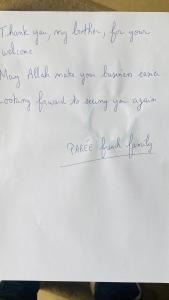 Thank you, my brother, for your
welcome
May Allah make your business easier
Looking forward to seeing you again
PARÉE french family